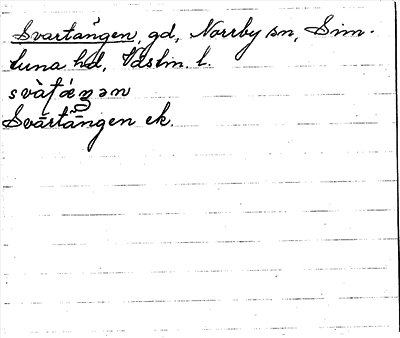 Svartängen, gd, Norrby sn, Sim-
tuna hd, Västm. l.
svàʈǽŋən
Svärtängen ek.